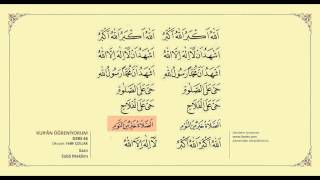 اَللّٰهُ اَكْبَرُ اَللّٰهُ اَكْبَرُ
اَللّٰهُ اَكْبَرُ اَللّٰهُ اَكْبَرُ
اَشْهَدُ اَنْ لَا اِلٰهَ اِلَّا اللّٰهُ
اَشْهَدُ اَنْ لَا اِلٰهَ اِلَّا اللّٰهُ
اَشْهَدُ اَنَّ مُحَمَّدًا رَسُولُ اللّٰهِ
اَشْهَدُ اَنَّ مُحَمَّدًا رَسُولُ اللّٰهِ
حَىَّ عَلَى الصَّلٰوةِ
حَىَّ عَلَى الصَّلٰوةِ
حَىَّ عَلَى الْفَلَاحِ
حَىَّ عَلَى الْفَلَاحِ
اَلصَّلَاةُ خَيْرٌ مِنَ النَّوْمِ
اَلصَّلَاةُ خَيْرٌ مِنَ النَّوْمِ
اَللّٰهُ اَكْبَرُ اَللّٰهُ اَكْبَرُ
لَا اِلٰهَ اِلَّا اللّٰهُ
KUR'ÂN ÖĞRENİYORUM
DERS 66
Okuyan: Fatih ÇOLLAK
Ezan
Sabâ Makâmı